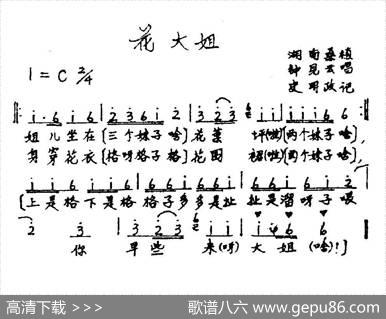 花大姐
湖南桑植
1=C 2/4
钟昆云唱
史明政记
i i 6 i 6 2 3 6 i 2 3 2 3 i i i i 6 i
姐儿坐在(三个妹子啥)花莱坪(啦)(两个妹子啥)
身穿花衣(格呀格子格)花围裙(啦)(两个妹子啥),
i i i 6 i i i 6 6 6 6 6 i i 6 i 6 i 2
(上是格下是格格子多多是扯扯是溜呀子喂
2 3 3 2 3 i i i 6 6 i
你早些来(呀)大姐(啥)!)
高清下载 >>>
歌谱八六 www.gepu86.com